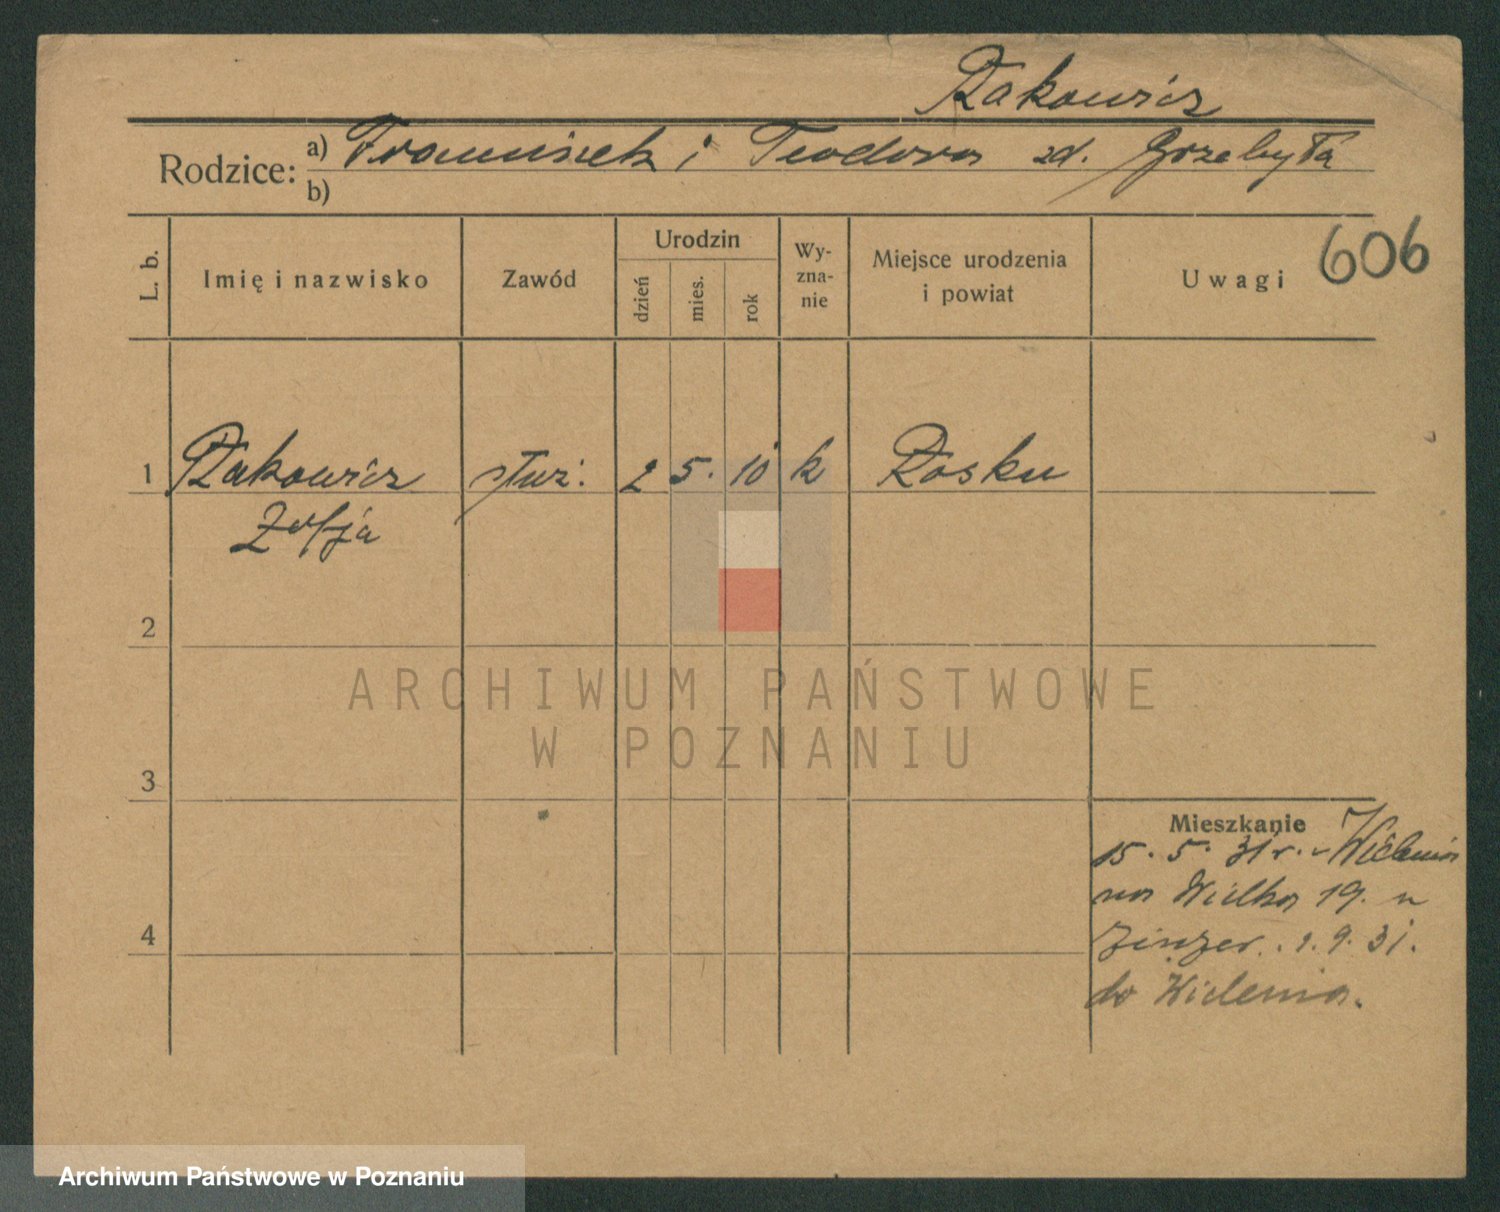 Rakowicz
Rodzice: a) Franciszek i Teodora zd. Grzebyta
b)
L. b. Imię i nazwisko Zawód Urodzin dzień mies. rok Wy-zna-nie Miejsce urodzenia i powiat Uwagi 606
1 Rakowicz służ. 2 5. 10 k Rosku
Zofja
2
ARCHIWUM PAŃSTWOWE
W POZNANIU
3
Mieszkanie
15. 5. 31 r. - Wielenia
na Wielka 19. u
4
Zinzer. 1. 9. 31.
do Wielenia.
Archiwum Państwowe w Poznaniu